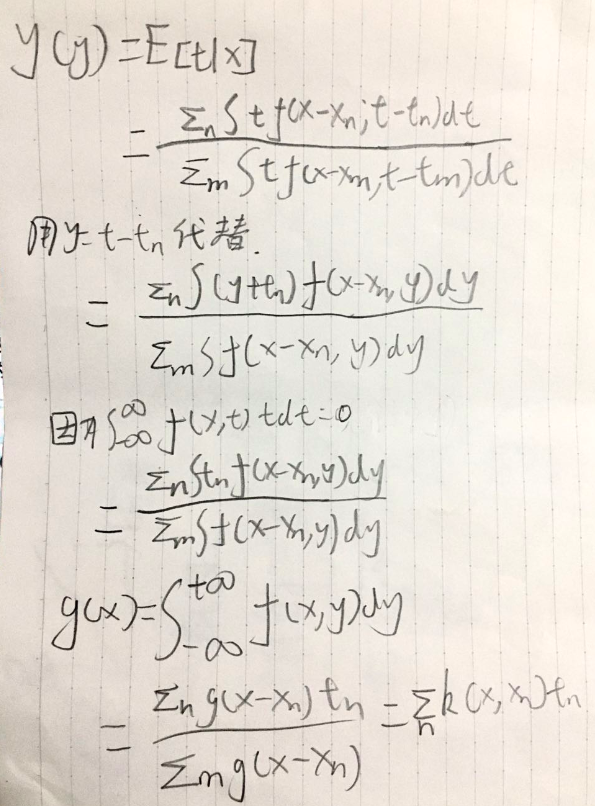 y(y)=E[t|x]
= Σn∫t f(x-xn, t-tn)dt / Σm∫t f(x-xm, t-tm)dt
用y=t-tn代替.
= Σn∫(y+tn)f(x-xn, y)dy / Σm∫f(x-xn, y)dy
因为∫-∞^∞ f(x,t)tdt=0
= Σn∫tn f(x-xn,y)dy / Σm∫f(x-xn,y)dy
g(x)=∫-∞^+∞ f(x,y)dy
= Σn g(x-xn)tn / Σm g(x-xn) = Σn k(x,xn)tn